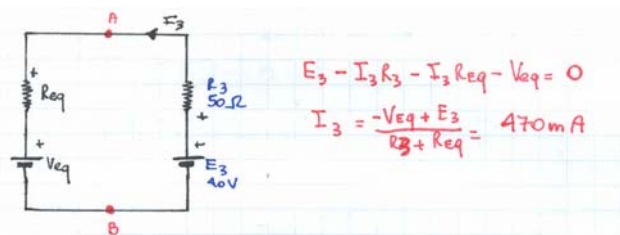 A
I₃
+
Req
R₃
50Ω
+
+
Veq
+
E₃
40V
B
E₃ - I₃R₃ - I₃REQ - VEQ = 0
I₃ = -VEQ + E₃ / R3 + REQ = 470 mA